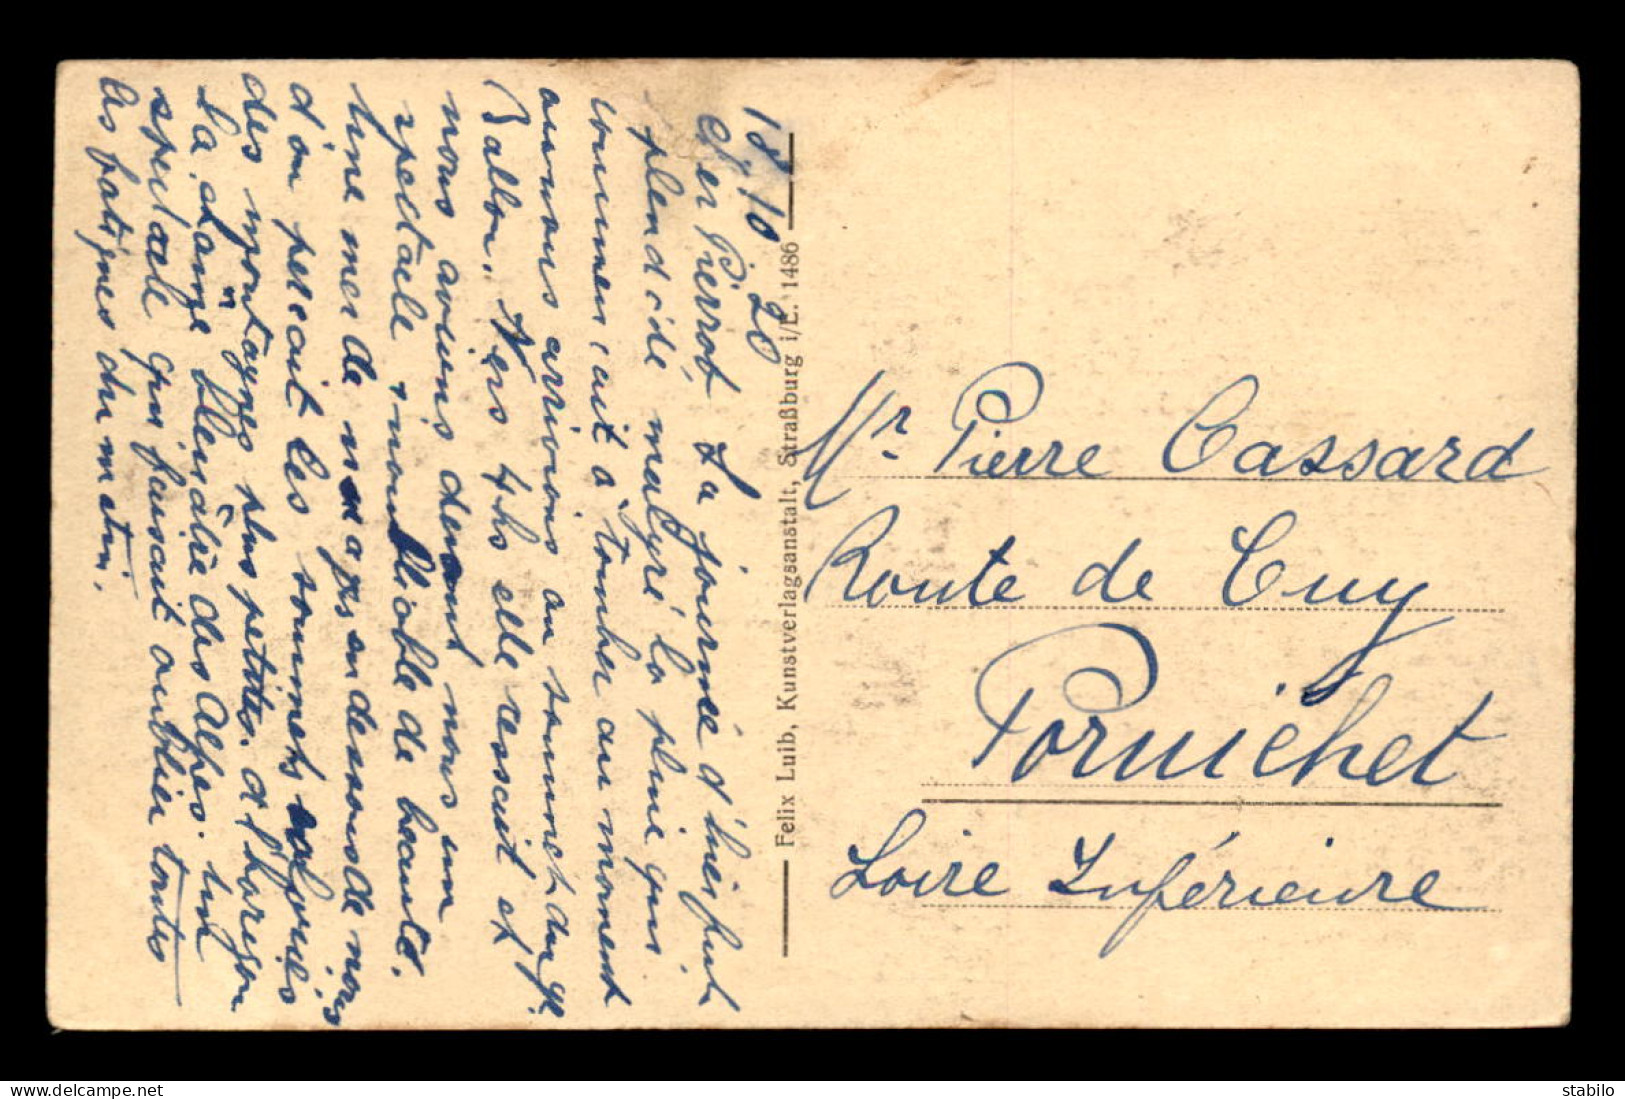 18/10 20
Cher Pierrot, La journée d'hier fut
splendide malgré la pluie qui
commençait à tomber au moment
où nous arrivions au sommet du gd
Ballon. Vers 4hs elle cessait et
nous avions devant nous un
spectacle inoubliable de beauté.
Une mer de nuages en dessous de nous
d'où perçait les sommets
des montagnes plus petites. à l'horizon
la chaîne bleuâtre des Alpes. Un
spectacle qui faisait oublier toutes
les fatigues du matin.
Felix Luib, Kunstverlagsanstalt, Straßburg i/E. 1486
Mr. Pierre Cassard
Route de Cuy
Pornichet
Loire Inférieure
stabilo